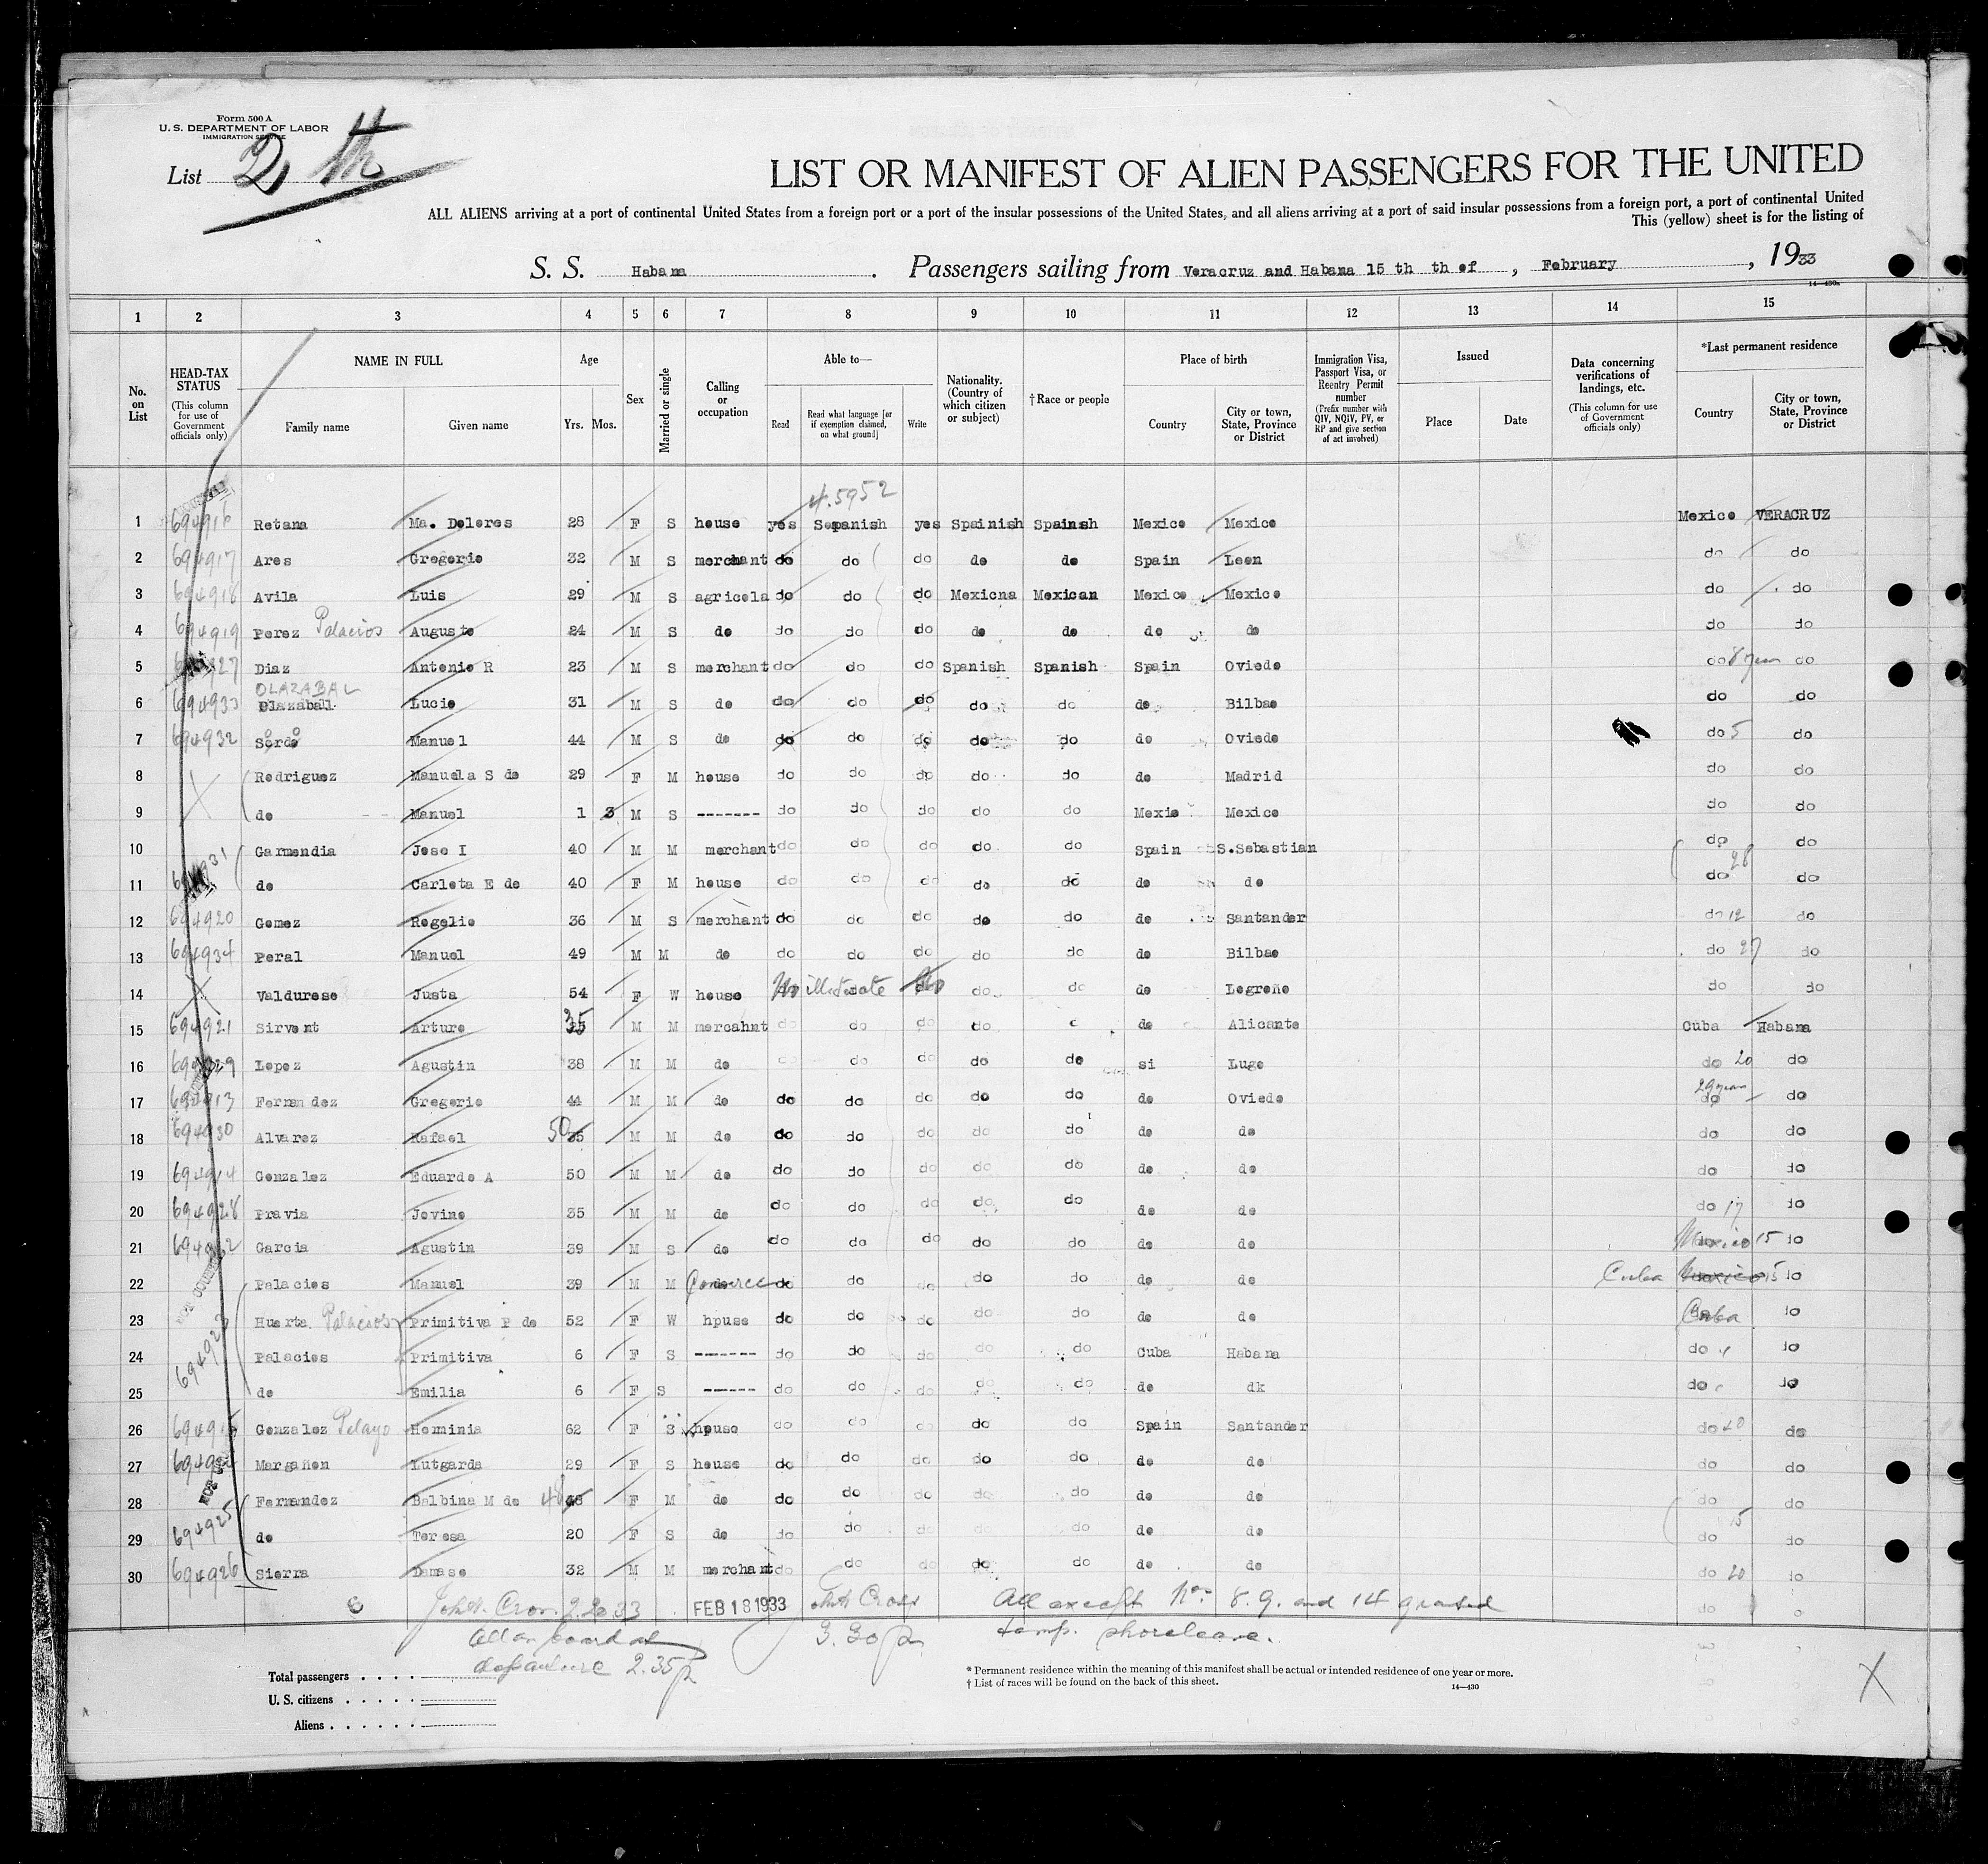 Form 500 A
U. S. DEPARTMENT OF LABOR
IMMIGRATION SERVICE
List 2 th
LIST OR MANIFEST OF ALIEN PASSENGERS FOR THE UNITED
ALL ALIENS arriving at a port of continental United States from a foreign port or a port of the insular possessions of the United States, and all aliens arriving at a port of said insular possessions from a foreign port, a port of continental United
This (yellow) sheet is for the listing of
S. S. Habana . Passengers sailing from Veracruz and Habana 15 th th of , February , 1933
14—430a
1 2 3 4 5 6 7 8 9 10 11 12 13 14 15
No. on List
HEAD-TAX STATUS (This column for use of Government officials only)
NAME IN FULL Family name Given name
Age Yrs. Mos.
Sex
Married or single
Calling or occupation
Able to— Read Read what language [or if exemption claimed, on what ground] Write
Nationality. (Country of which citizen or subject)
†Race or people
Place of birth Country City or town, State, Province or District
Immigration Visa, Passport Visa, or Reentry Permit number (Prefix number with QIV, NQIV, PV, or RP and give section of act involved)
Issued Place Date
Data concerning verifications of landings, etc. (This column for use of Government officials only)
*Last permanent residence Country City or town, State, Province or District
4.5952
1 694916 Retana Ma. Dolores 28 F S house yes Sepanish yes Spainish Spainsh Mexico Mexico Mexico VERACRUZ
2 694917 Ares Gregorio 32 M S merchant do do do do do Spain Leon do do
3 694918 Avila Luis 29 M S agricola do do do Mexicna Mexican Mexico Mexico do do
4 694919 Perez Palacios Augusto 24 M S do do do do do do do do do do
5 Diaz Antonio R 23 M S merchant do do do Spanish Spanish Spain Oviedo do 8 years do
OLAZABAL
6 694933 Olazabal Lucio 31 M S do do do do do do do Bilbao do do
7 694932 Sordo Manuel 44 M S do do do do do do do Oviedo do 5 do
8 Rodriguez Manuela S de 29 F M house do do do do do do Madrid do do
9 do Manuel 1 3 M S ------- do do do do do Mexio Mexico do do
10 Garmendia Jose I 40 M M merchant do do do do do Spain S.Sebastian do do
28
11 694931 do Carlota E de 40 F M house do do do do do do do do do
12 694920 Gomez Rogelio 36 M S merchant do do do do do do Santander do 12 do
13 694934 Peral Manuel 49 M M do do do do do do do Bilbao do 27 do
14 Valdureso Justa 54 F W house No illiterate No do do do Logroño do do
15 694921 Sirvent Arturo 35 M M mercahnt do do do do do Alicante Cuba Habana
16 694929 Lopez Agustin 38 M M do do do do do do si Lugo do 20 do
29 years
17 694913 Fernandez Gregorio 44 M M do do do do do do do Oviedo do do
18 694930 Alvarez Rafael 50 35 M M do do do do do do do do do do
19 694914 Gonzalez Eduardo A 50 M M do do do do do do do do do do
20 694928 Pravia Jovino 35 M M do do do do do do do do do 17 do
21 Garcia Agustin 39 M S do do do do do do do do Mexico 15 do
22 Palacios Manuel 39 M M Comerce do do do do do do do Cuba Mexico 15 do
23 Huerta Palacios Primitiva P de 52 F W hpuse do do do do do do do Cuba do
24 694923 Palacios Primitiva 6 F S ------- do do do do do Cuba Habana do do
25 do Emilia 6 F S ------ do do do do do do dk do do
26 694915 Gonzalez Pelayo Herminia 62 F S house do do do do do Spain Santander do 40 do
27 Margañon Lutgarda 29 F S house do do do do do do do do do
28 Fernandez Balbina M de 48 F M do do do do do do do do do do
15
29 694925 do Teresa 20 F S do do do do do do do do do do
30 694926 Sierra Damaso 32 M M merchant do do do do do do do do 20 do
FEB 18 1933 All except Nos 8. 9. and 14 granted
temp. shoreleave.
3.30 p
All on board at
departure 2.35 p
Total passengers . . . .
U. S. citizens . . . . .
Aliens . . . . . .
* Permanent residence within the meaning of this manifest shall be actual or intended residence of one year or more.
† List of races will be found on the back of this sheet.
14—430